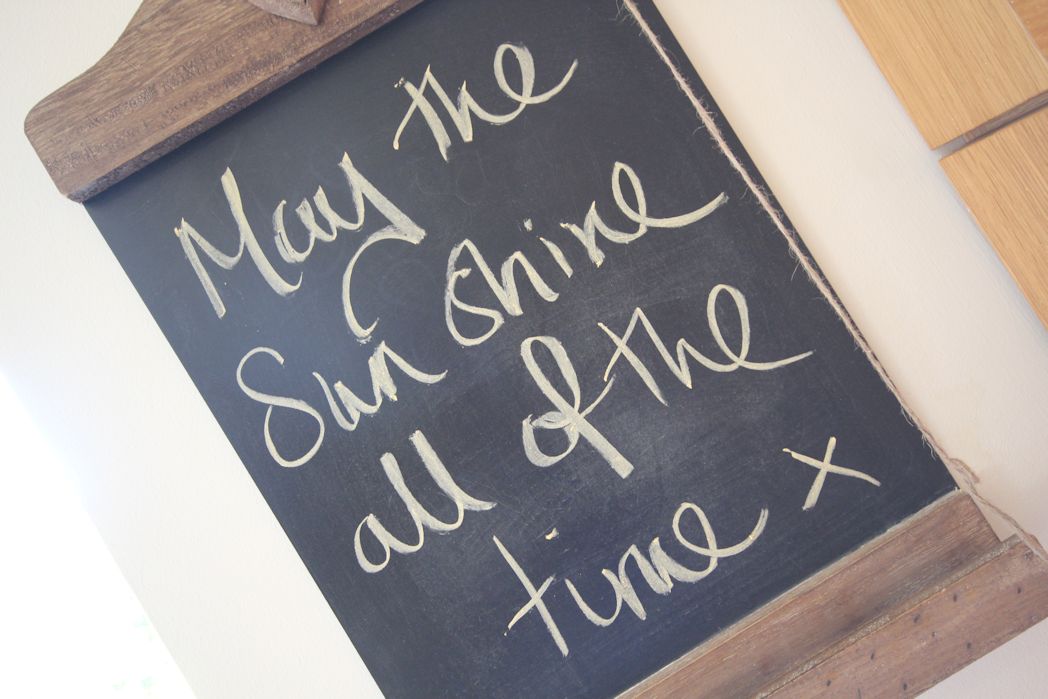 May the
Sun shine
all of the
time x